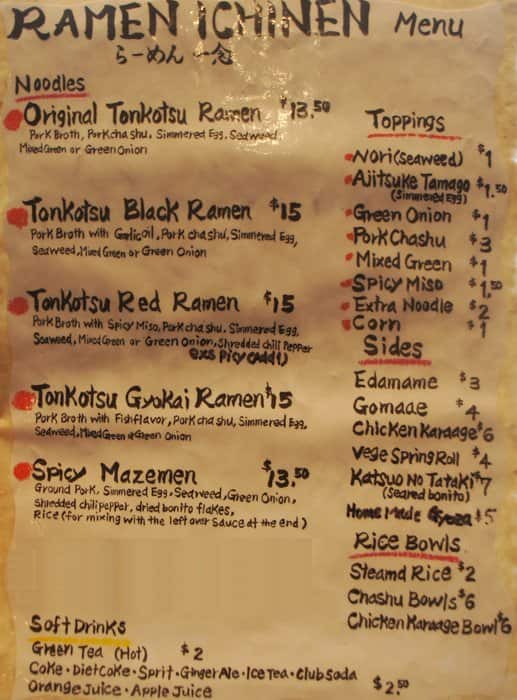 RAMEN ICHINEN Menu
らーめん 一念
Noodles
Original Tonkotsu Ramen $13.50
Pork Broth, Pork chashu, Simmered Egg, Seaweed
Mixed Green or Green Onion
Tonkotsu Black Ramen $15
Pork Broth with Garlic oil, Pork chashu, Simmered Egg,
Seaweed, Mixed Green or Green Onion
Tonkotsu Red Ramen $15
Pork Broth with Spicy Miso, Pork chashu, Simmered Egg,
Seaweed, Mixed Green or Green Onion, Shredded chili Pepper
Tonkotsu Gyokai Ramen $15
Pork Broth with Fish flavor, Pork chashu, Simmered Egg,
Seaweed, Mixed Green or Green Onion
Spicy Mazemen $13.50
Ground Pork, Simmered Egg, Seaweed, Green Onion,
Shredded chili pepper, dried bonito flakes,
Rice (for mixing with the left over Sauce at the end)
Soft Drinks
Green Tea (Hot) $2
Coke · Diet Coke · Sprit · Ginger Ale · Ice Tea · Club Soda
Orange Juice · Apple Juice $2.50
Toppings
Nori (seaweed) $1
Ajitsuke Tamago $1.50
(Simmered Egg)
Green Onion $1
Pork Chashu $3
Mixed Green $1
Spicy Miso $1.50
Extra Noodle $2
Corn $1
Sides
Edamame $3
Gomaae $4
Chicken Karaage $6
Vege Spring Roll $4
Katsuo No Tataki $7
(Seared bonito)
Home Made Gyoza $5
Rice Bowls
Steamd Rice $2
Chashu Bowls $6
Chicken Karaage Bowl $6